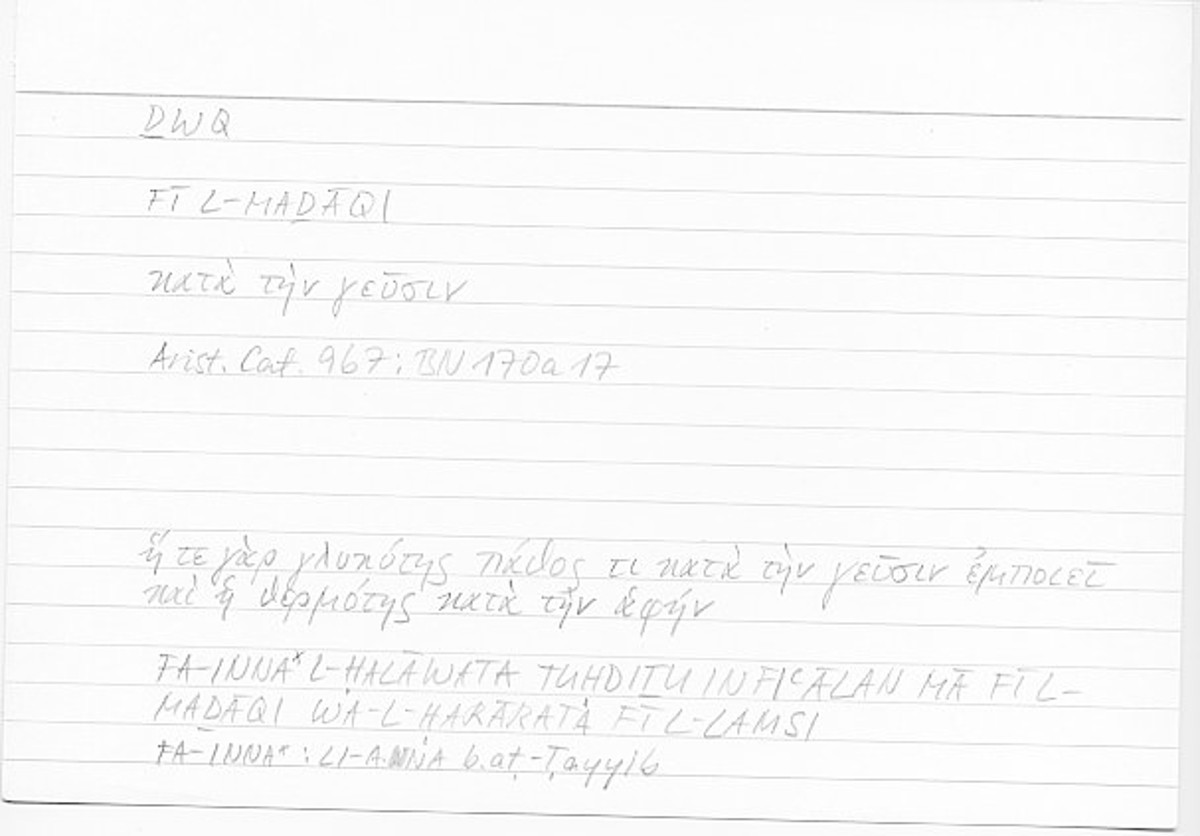 ḎWQ
FĪ L-MAḎĀQI
κατὰ τὴν γεῦσιν
Arist. Cat. 967; BN 170a 17
ἥ τε γὰρ γλυκύτης πάθος τι κατὰ τὴν γεῦσιν ἐμποιεῖ
καὶ ἡ θερμότης κατὰ τὴν ἁφήν
FA-INNA* L-ḤALĀWATA TUḤDIṮU INFIʿĀLAN MĀ FĪ L-
MAḎĀQI WA-L-ḤARĀRATA FĪ L-LAMSI
FA-INNA* : LI-ANNA b. aṭ-Ṭayyib